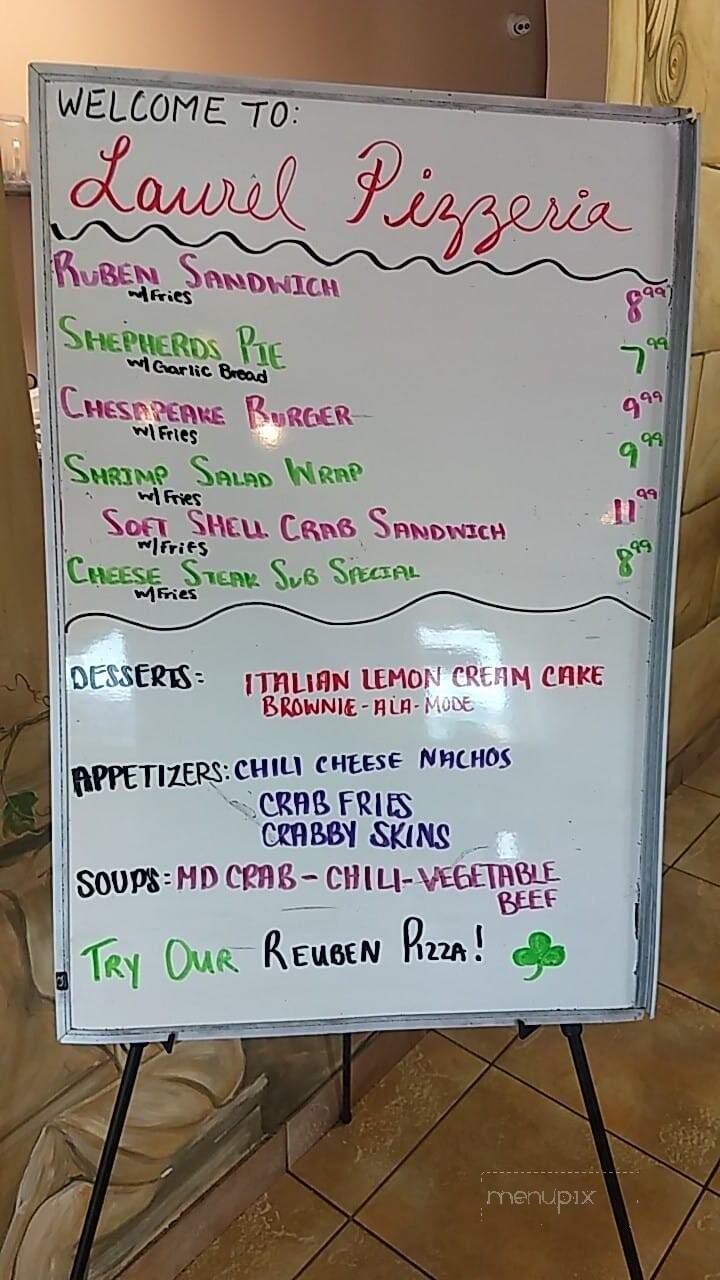 WELCOME TO:
Laurel Pizzeria
RUBEN SANDWICH 8.99
w/Fries
SHEPHERDS PIE 7.99
w/Garlic Bread
CHESAPEAKE BURGER 9.99
w/Fries
SHRIMP SALAD WRAP 9.99
w/Fries
SOFT SHELL CRAB SANDWICH 11.99
w/Fries
CHEESE STEAK SUB SPECIAL 8.99
w/Fries
DESSERTS: ITALIAN LEMON CREAM CAKE
BROWNIE-ALA-MODE
APPETIZERS: CHILI CHEESE NACHOS
CRAB FRIES
CRABBY SKINS
SOUPS: MD CRAB - CHILI - VEGETABLE
BEEF
TRY OUR REUBEN PIZZA!
menupix